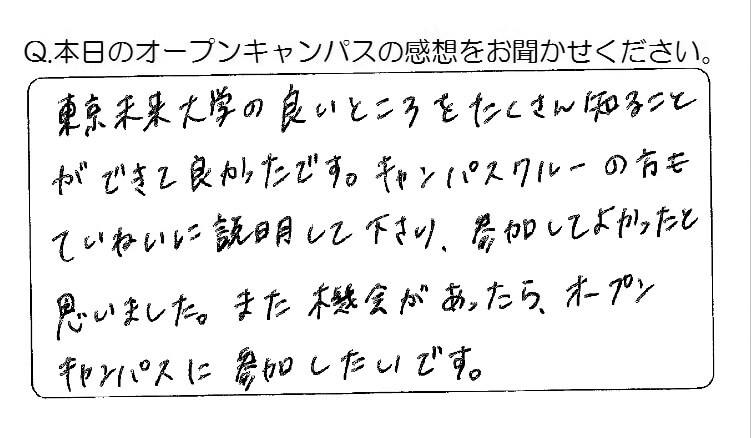 Q.本日のオープンキャンパスの感想をお聞かせください。
東京未来大学の良いところをたくさん知ること
ができて良かったです。キャンパスクルーの方も
ていねいに説明して下さり、参加してよかったと
思いました。また機会があったら、オープン
キャンパスに参加したいです。